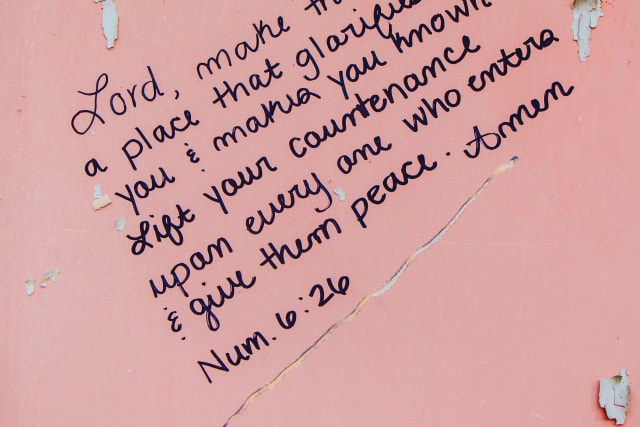 Lord, make
a place that glorifies
you & makes you known
Lift your countenance
upon every one who enters
& give them peace. Amen
Num. 6:26